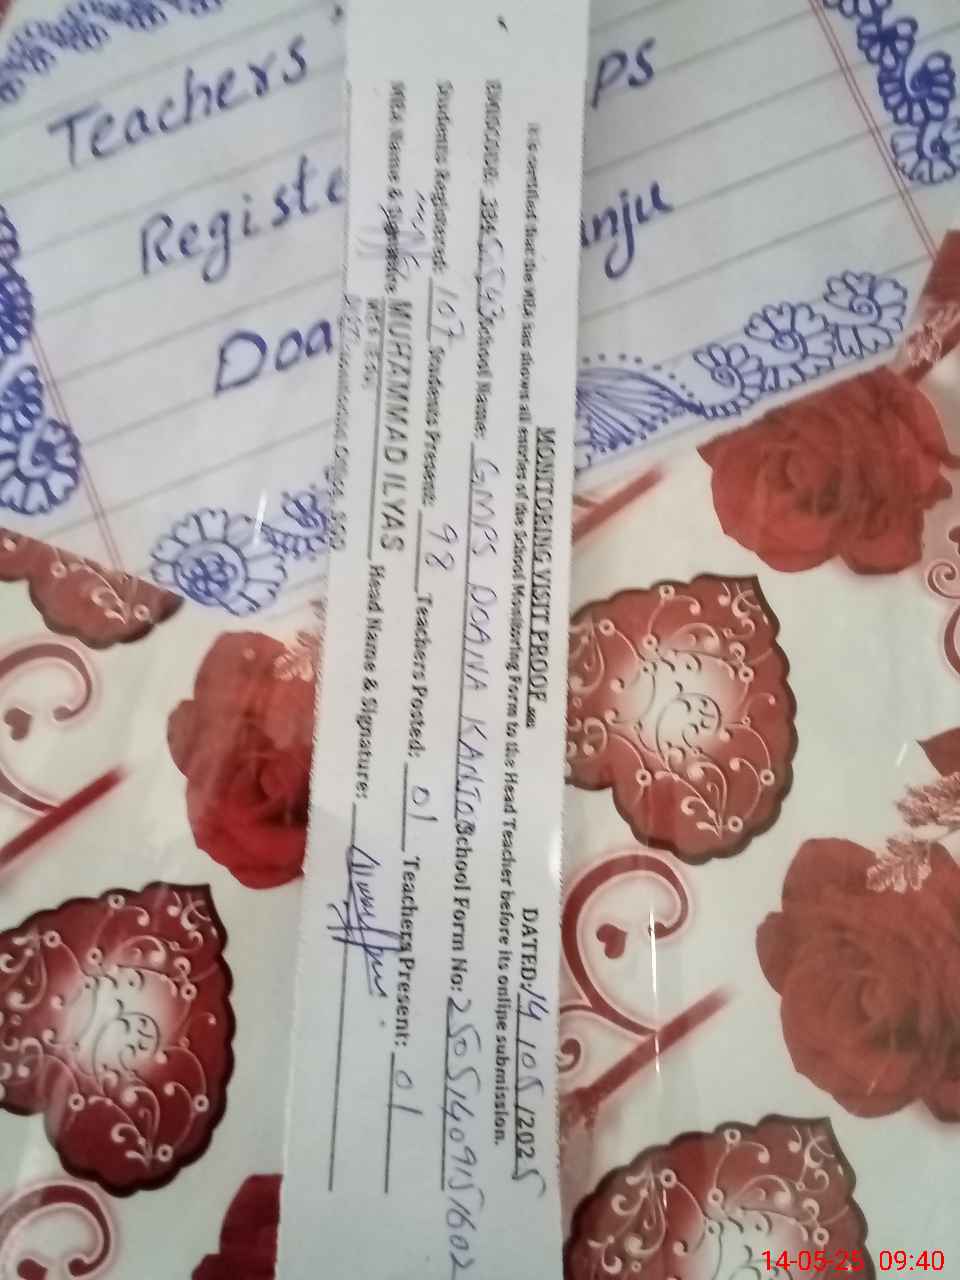 Teachers ps
Registe anju
Doa
MONITORING VISIT PROOF
DATED: 14/05/2025
It is certified that the MEA has shown all entries of the School Monitoring Form to the Head Teacher before its online submission.
EMISCODE: 3845593 School Name: GMPS DOANA KANJOO School Form No: 25051409151602
Students Registered: 107 Students Present: 98 Teachers Posted: 01 Teachers Present: 01
MEA Name & Signature: MUHAMMAD ILYAS Head Name & Signature:
Monitoring Office,
14-05-25 09:40